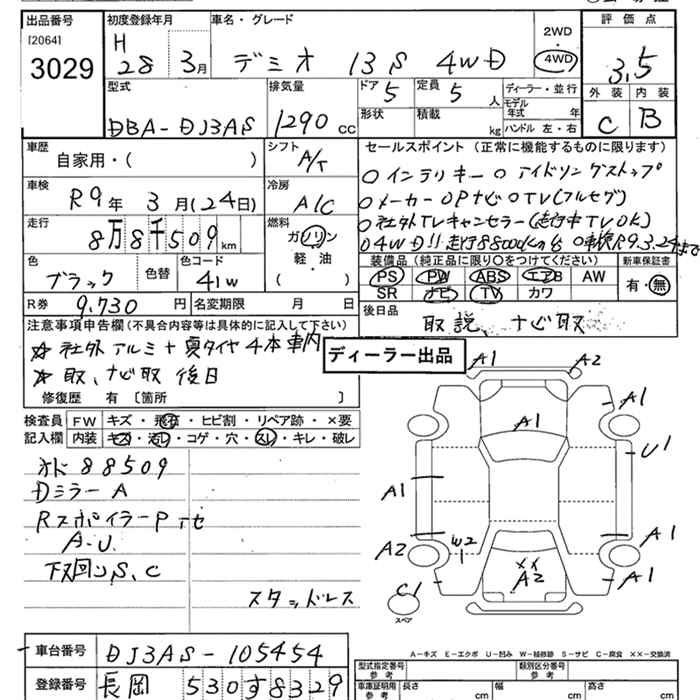 出品番号 初度登録年月 車名・グレード 評価点
[2064]
3029
H 28 3月 デミオ 13S 4WD 2WD 4WD 3.5
型式 排気量 ドア 5 定員 5人 ディーラー・並行 外装 内装
DBA-DJ3AS 1290 cc 形状 積載 kg モデル年式 年 C B
ハンドル 左・右
車歴 シフト セールスポイント (正常に機能するものに限ります)
自家用・( ) A/T
○インテリキー○アイドリングストップ
車検 冷房
R9年 3月(24日) A/C
○メーカーOPナビ○TV(フルセグ)
走行 燃料
8万8千509km ガソリン・軽油・( )
○社外TVキャンセラー(走行中TVOK)
○4WD!!走行88000km台○車検R9.3.24まで
色 色替 色コード
ブラック 41W
装備品(純正品に限り○をつけてください) 新車保証書
PS PW ABS エアB AW 有・無
SR ナビ TV カワ
R券 9,730円 名変期限 月 日
後日品
取説、ナビ取
注意事項申告欄(不具合内容等は具体的に記入して下さい)
☆社外アルミ+夏タイヤ4本車内
☆取、ナビ取 後日
修復歴 有 〔箇所 〕
ディーラー出品
検査員記入欄 FW キズ・飛石・ヒビ割・リペア跡・×要
内装 キズ・汚レ・コゲ・穴・スレ・キレ・破レ
オド 88509
Dミラー A
RスポイラーPテセ
A.U.
下回りS、C
スタッドレス
A1 A2
A1
A1
U1
A1
W2
1
A2
A1
××
A2
A1
C1
スペア
A-キズ E-エクボ U-凹み W-補修跡 S-サビ C-腐食 ××-交換済
車台番号 DJ3AS-105454
型式指定番号 参考 類別区分番号 参考
登録番号 長岡 530す8329
車庫証明用 参考 長さ cm 幅 cm 高さ cm